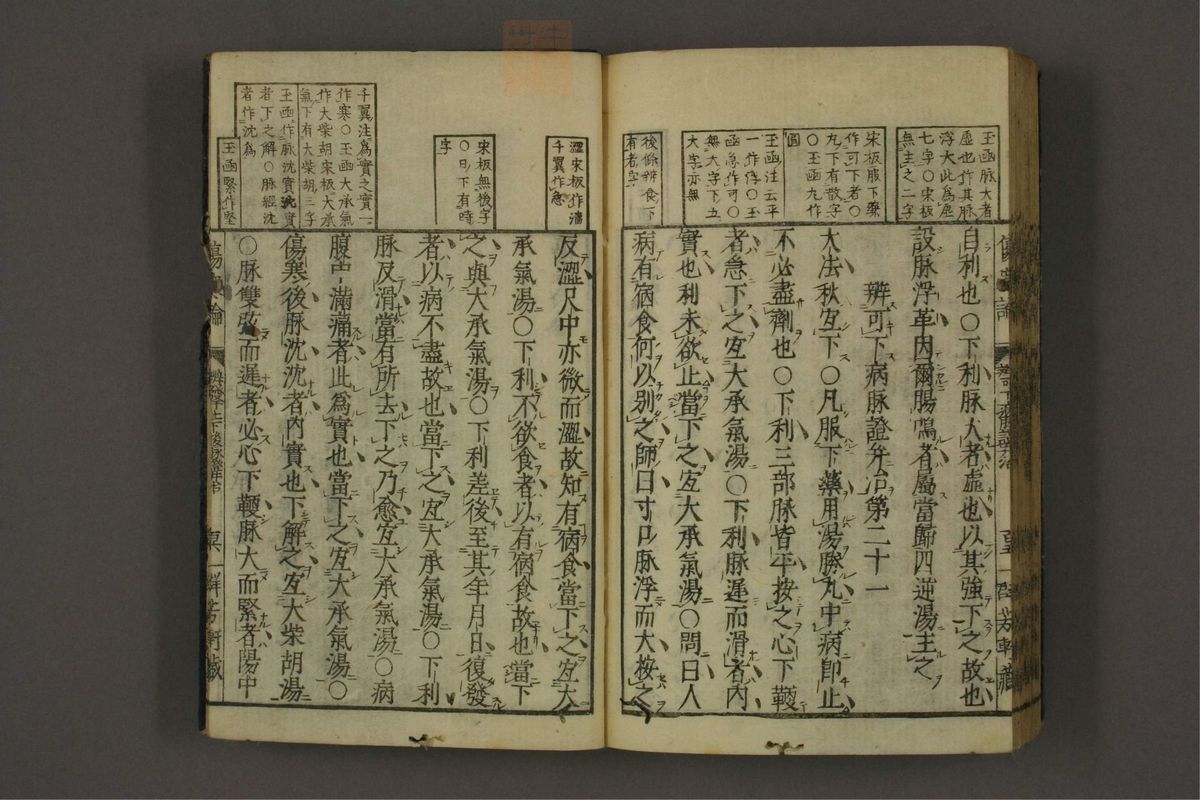 玉函脉大者
虛也作其脉
浮大此為虛
七字〇宋板
無主之二字
宋板服下藥
作可下者〇
丸下有散字
〇玉函九作
圓
玉函注云平
一作浮〇玉
函急作可〇
無大字下五
大字亦無
後條辨食下
有者字
自利也〇下利脉大者虛也以其強下之故也
設脉浮革因爾腸鳴者屬當歸四逆湯主之
辨可下病脉證并治第二十一
大法秋宐下〇凡服下藥用湯勝丸中病即止
不必盡劑也〇下利三部脉皆平按之心下鞕
者急下之宐大承氣湯〇下利脉遲而滑者內
實也利未欲止當下之宐大承氣湯〇問曰人
病有宿食何以別之師曰寸口脉浮而大按之
澀宋板作濇
千翼作急
宋板無後字
〇日下有時
字
千翼注為實之實一
作寒〇玉函大承氣
作大柴胡宋板大承
氣下有大柴胡三字
玉函作脉沈實沈實
者下之解〇脉經沈
者作沈為
玉函緊作堅
反澀尺中亦微而澀故知有宿食當下之宐大
承氣湯〇下利不欲食者以有宿食故也當下
之與大承氣湯〇下利差後至其年月日復發
者以病不盡故也當下之宐大承氣湯〇下利
脉反滑當有所去下之乃愈宐大承氣湯〇病
腹中滿痛者此為實也當下之宐大承氣湯〇
傷寒後脉沈沈者內實也下解之宐大柴胡湯
〇脉雙弦而遲者必心下鞕脉大而緊者陽中